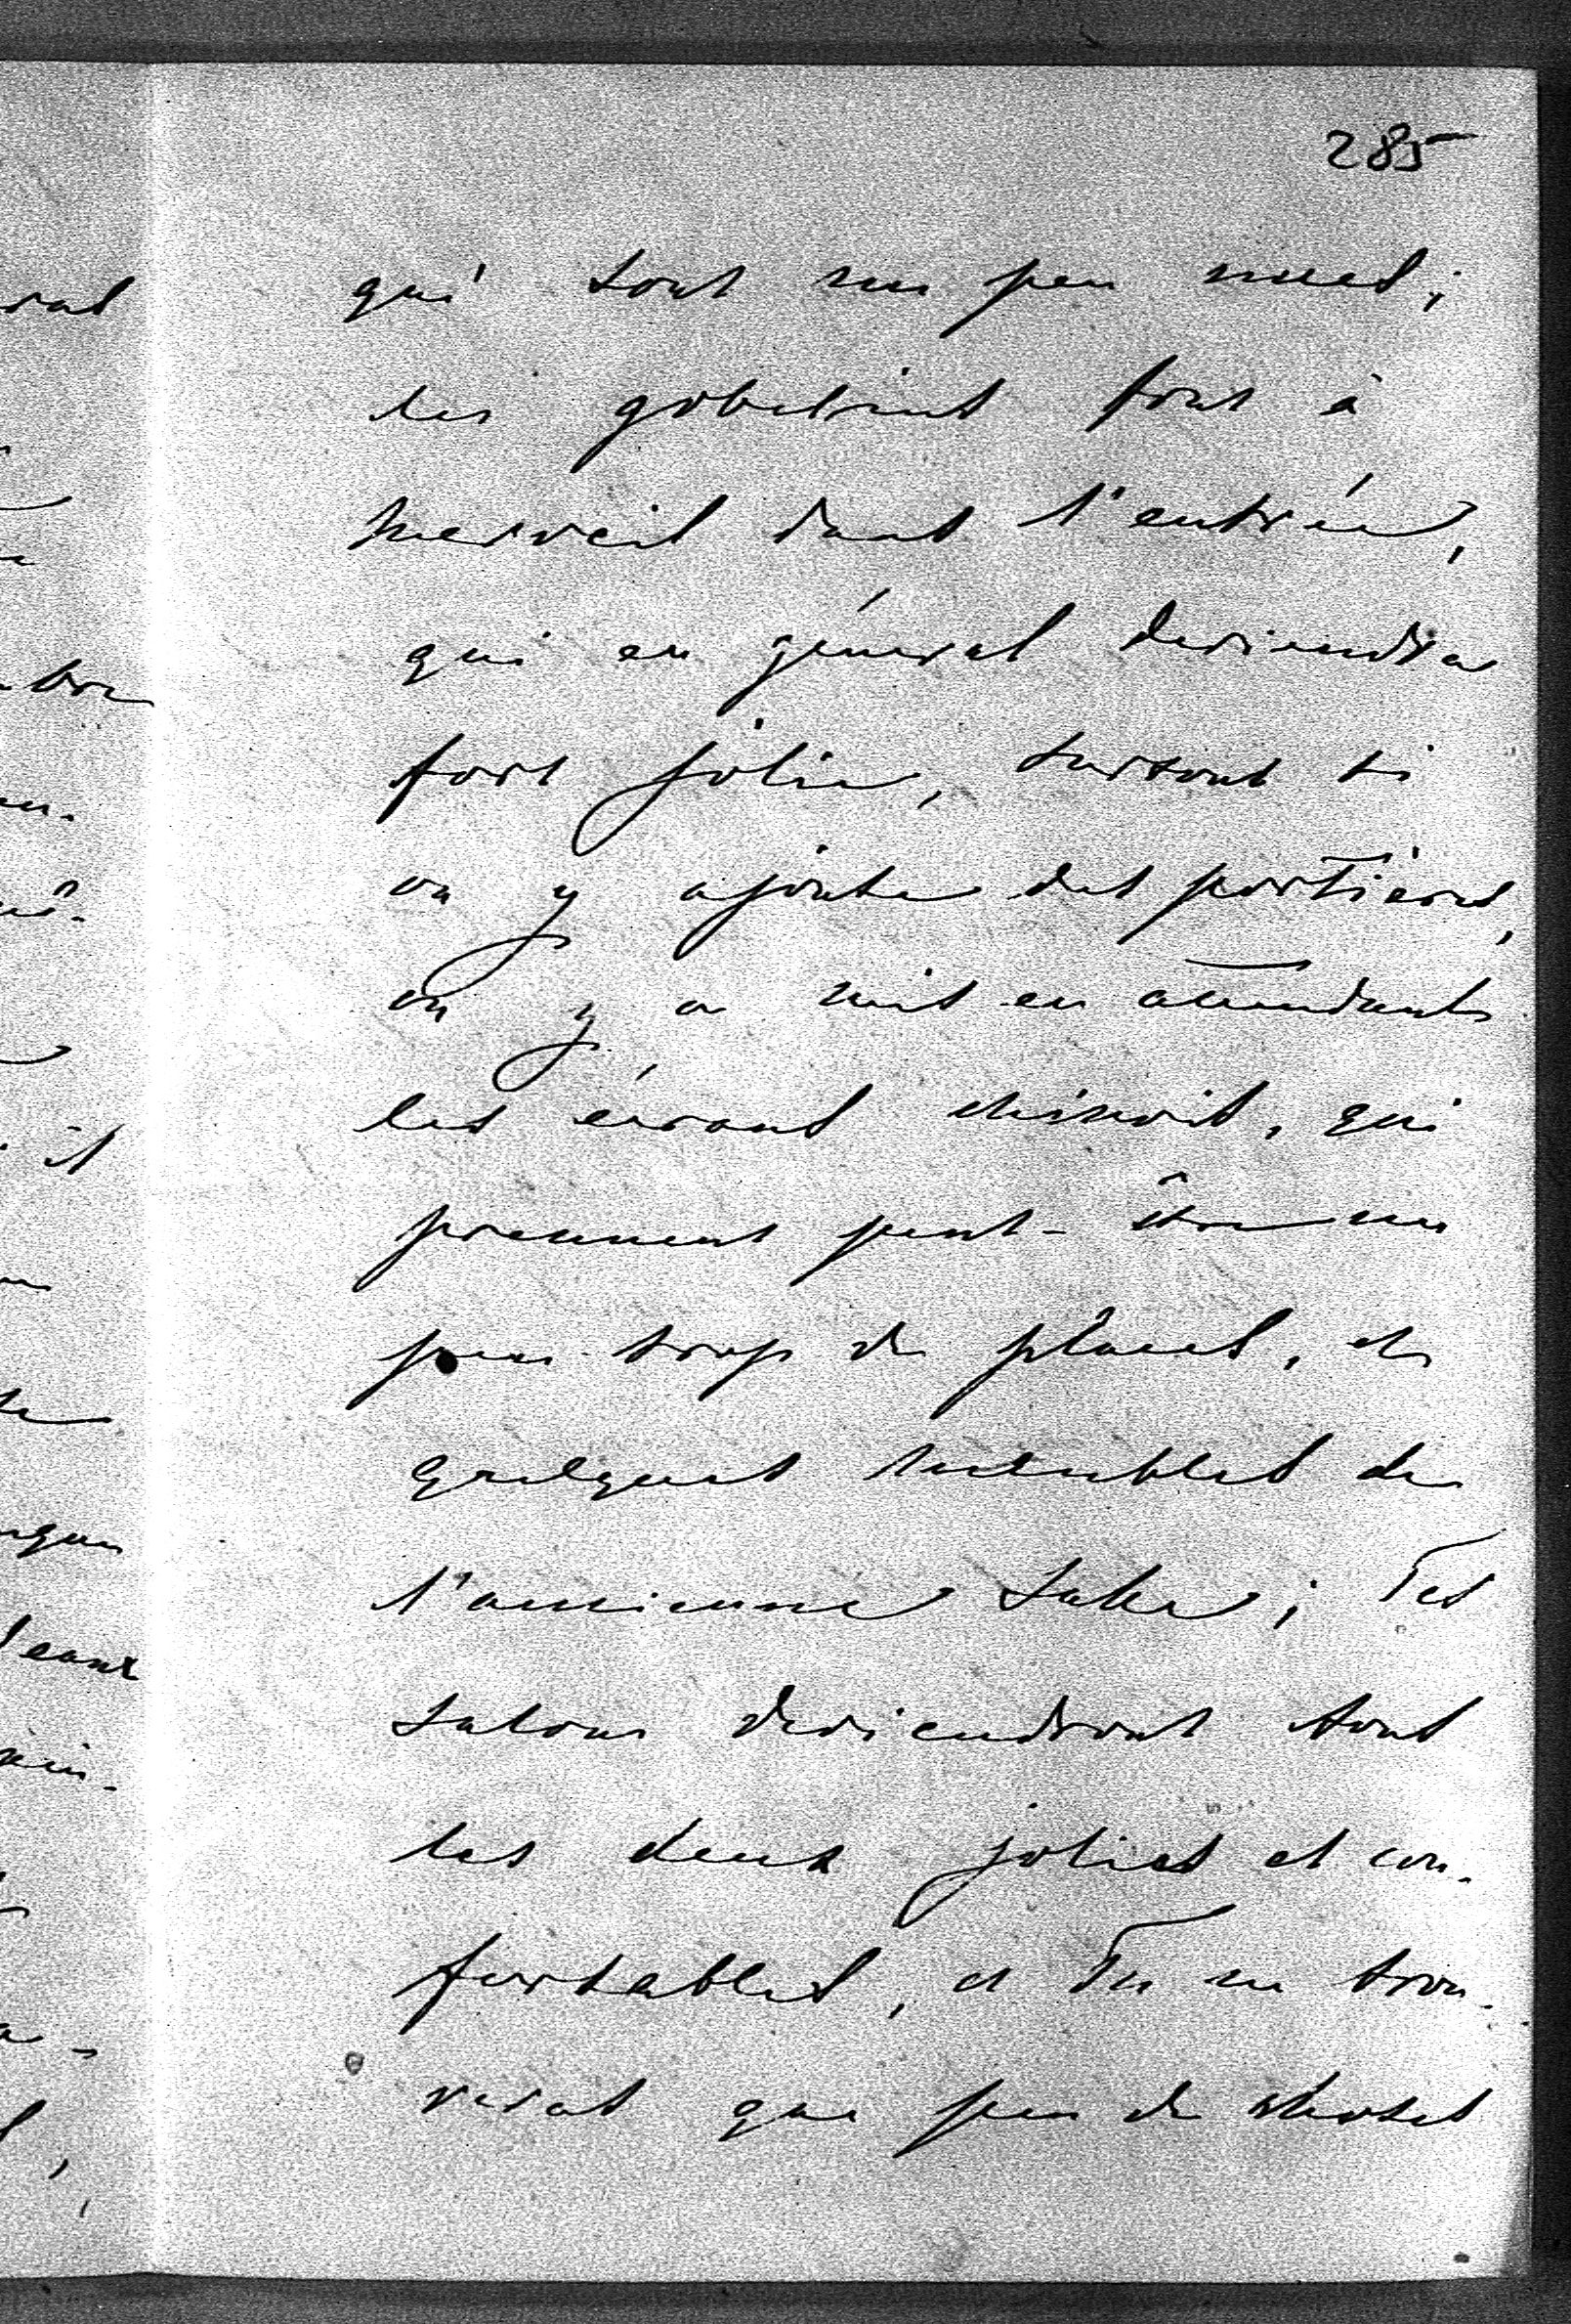 285
qui sont un peu nues;
les gobelins font à
merveil dans l'entrée,
qui en général deviendra
fort jolie, surtout si
on y ajoute des portières,
on y a mis en attendant
les écrans chinois, qui
prennent peut-être un
peu trop de places, et
quelques meubles de
l'ancienne salle; Tes
salons deviendront tous
les deux jolies et con-
fortables, et Tu ne trou-
veras que peu de choses